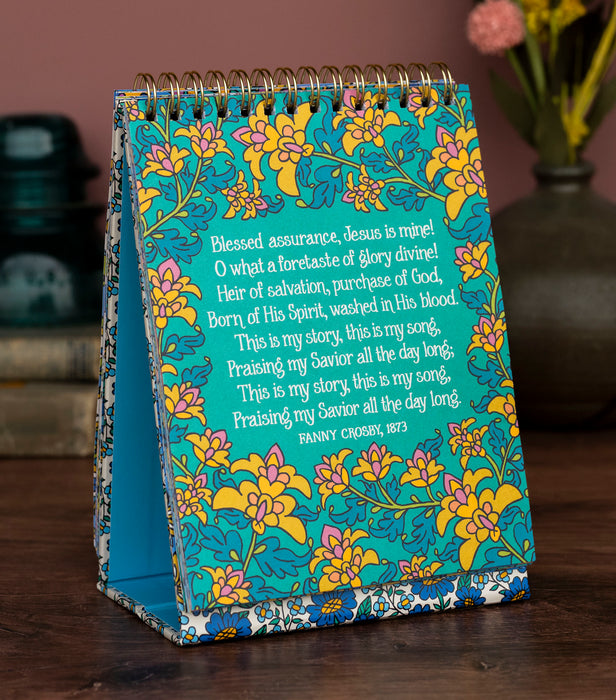 Blessed assurance, Jesus is mine!
O what a foretaste of glory divine!
Heir of salvation, purchase of God,
Born of His Spirit, washed in His blood.
This is my story, this is my song,
Praising my Savior all the day long;
This is my story, this is my song,
Praising my Savior all the day long.
FANNY CROSBY, 1873